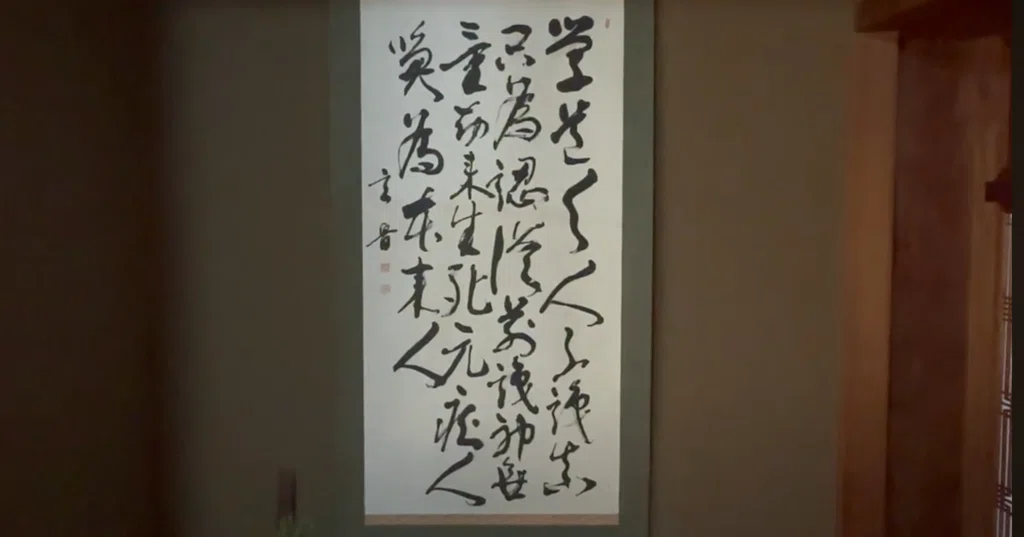 学道之人不識真
只為認従前識神無
量劫来生死元痴人
喚為本来人